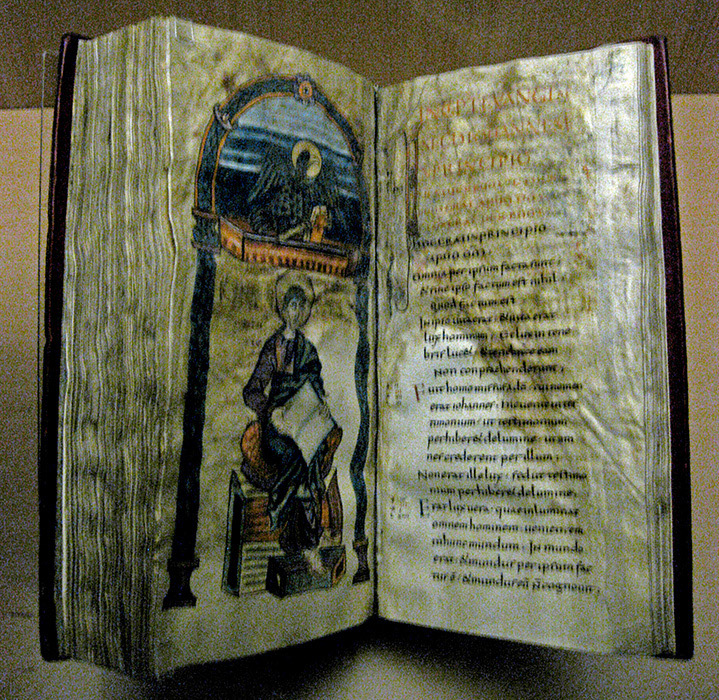 INCIP EVANGLIV
SECD IOHANNEM
PRINCIPIO
HOC ERAT IN PRINCIPIO
apud dm̄;
Omnia per ipsum facta sunt;
& sine ipso factum est nihil
quod factum est
In ipso uita erat. & uita erat
lux hominum; & lux in tene
bris luc& & tenebrae eam
non conprehenderunt;
Fuit homo missus a dō. cui nomen
erat iohannes; hic uenit in tes
timonium. ut testimonium
perhiber& de lumine. ut om
nes crederent per illum;
Non erat ille lux. sed ut testimo
nium perhiber& de lumine;
Erat lux uera. quae inluminat
omnem hominem uenientem
in hunc mundum; In mundo
erat. & mundus per ipsum fac
tus ē. & mundus eū ñ cognouit;